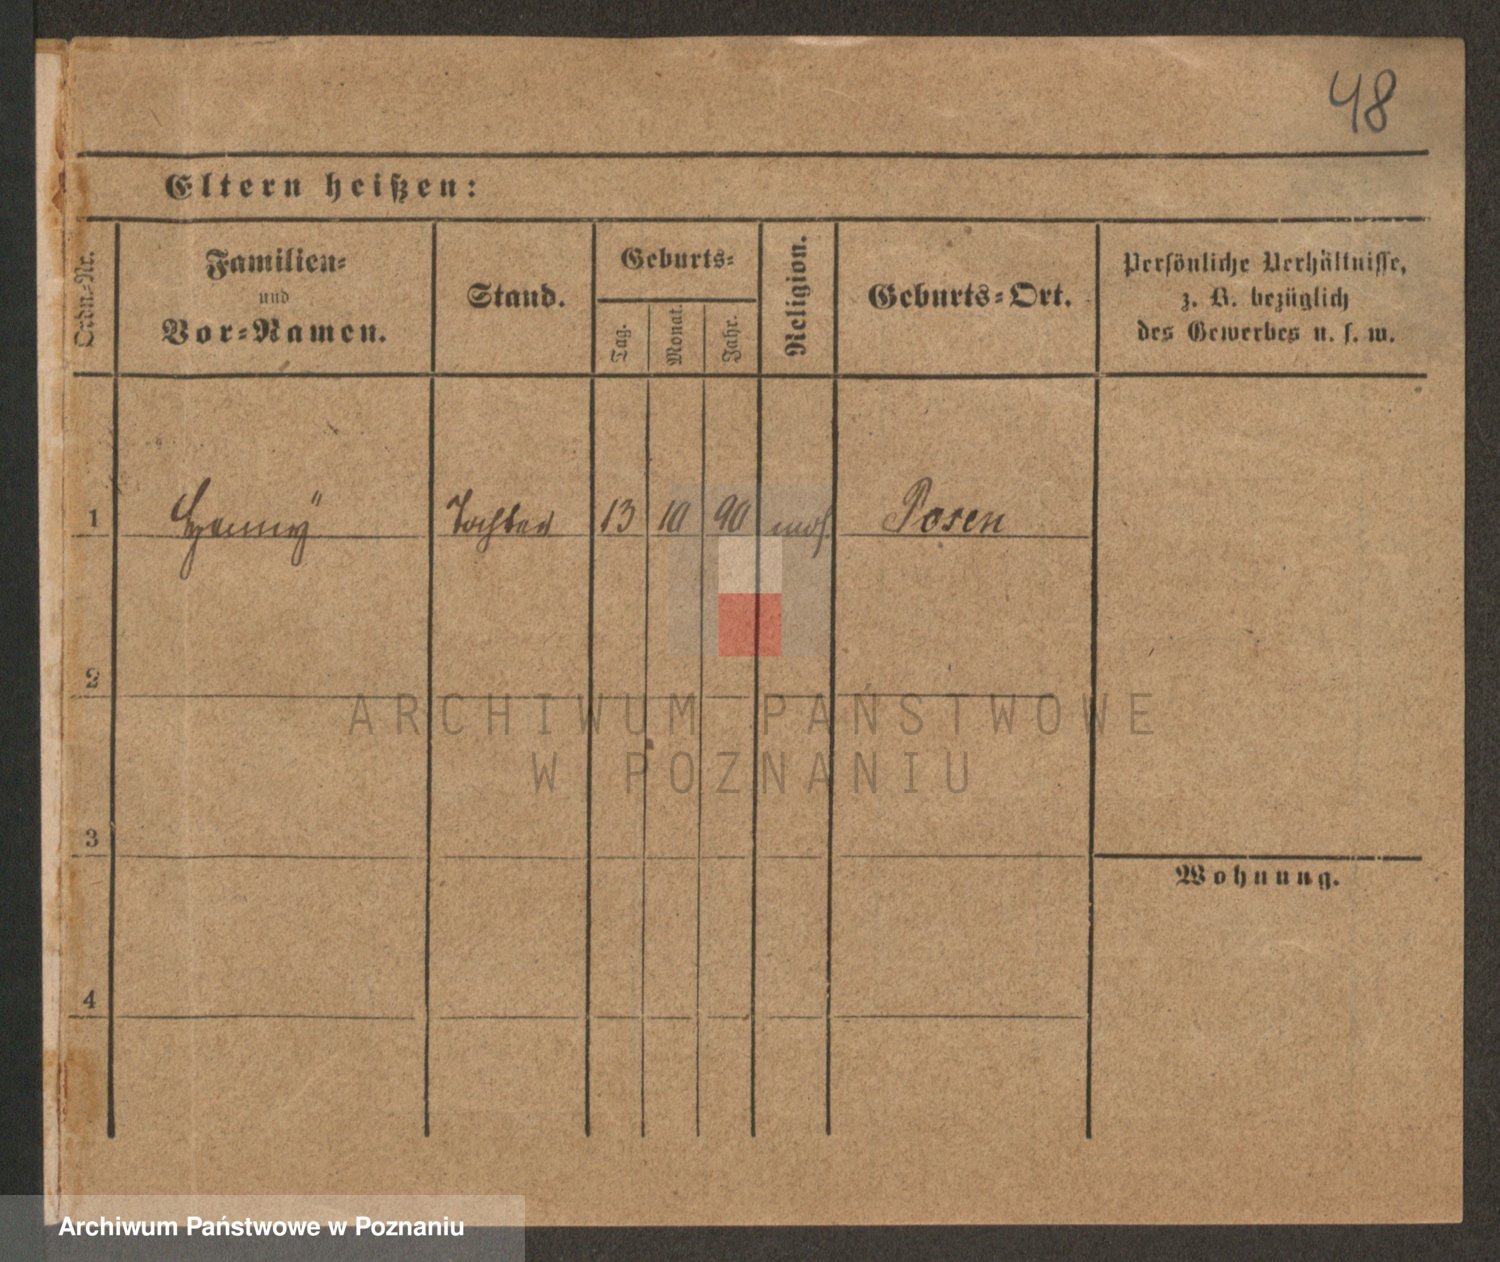 48
Eltern heißen:
Ordn.-Nr.
Familien-
und
Vor-Namen.
Stand.
Geburts-
Tag.
Monat.
Jahr.
Religion.
Geburts-Ort.
Persönliche Verhältnisse,
z. B. bezüglich
des Gewerbes u. s. w.
1 Tochter 13 10 90 mos. Posen
2
3
4
Wohnung.
ARCHIWUM PAŃSTWOWE
W POZNANIU
Archiwum Państwowe w Poznaniu